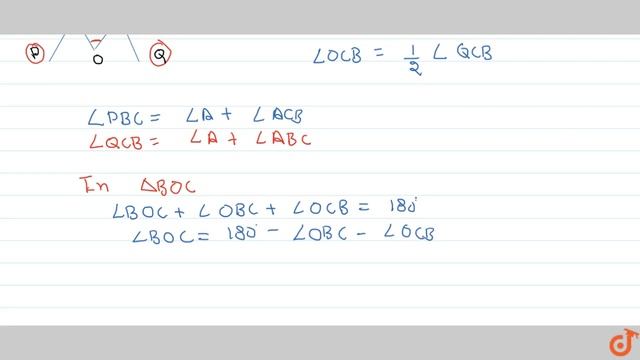 P O Q
∠OCB = 1/2 ∠QCB
∠PBC = ∠A + ∠ACB
∠QCB = ∠A + ∠ABC
In △BOC
∠BOC + ∠OBC + ∠OCB = 180°
∠BOC = 180° - ∠OBC - ∠OCB